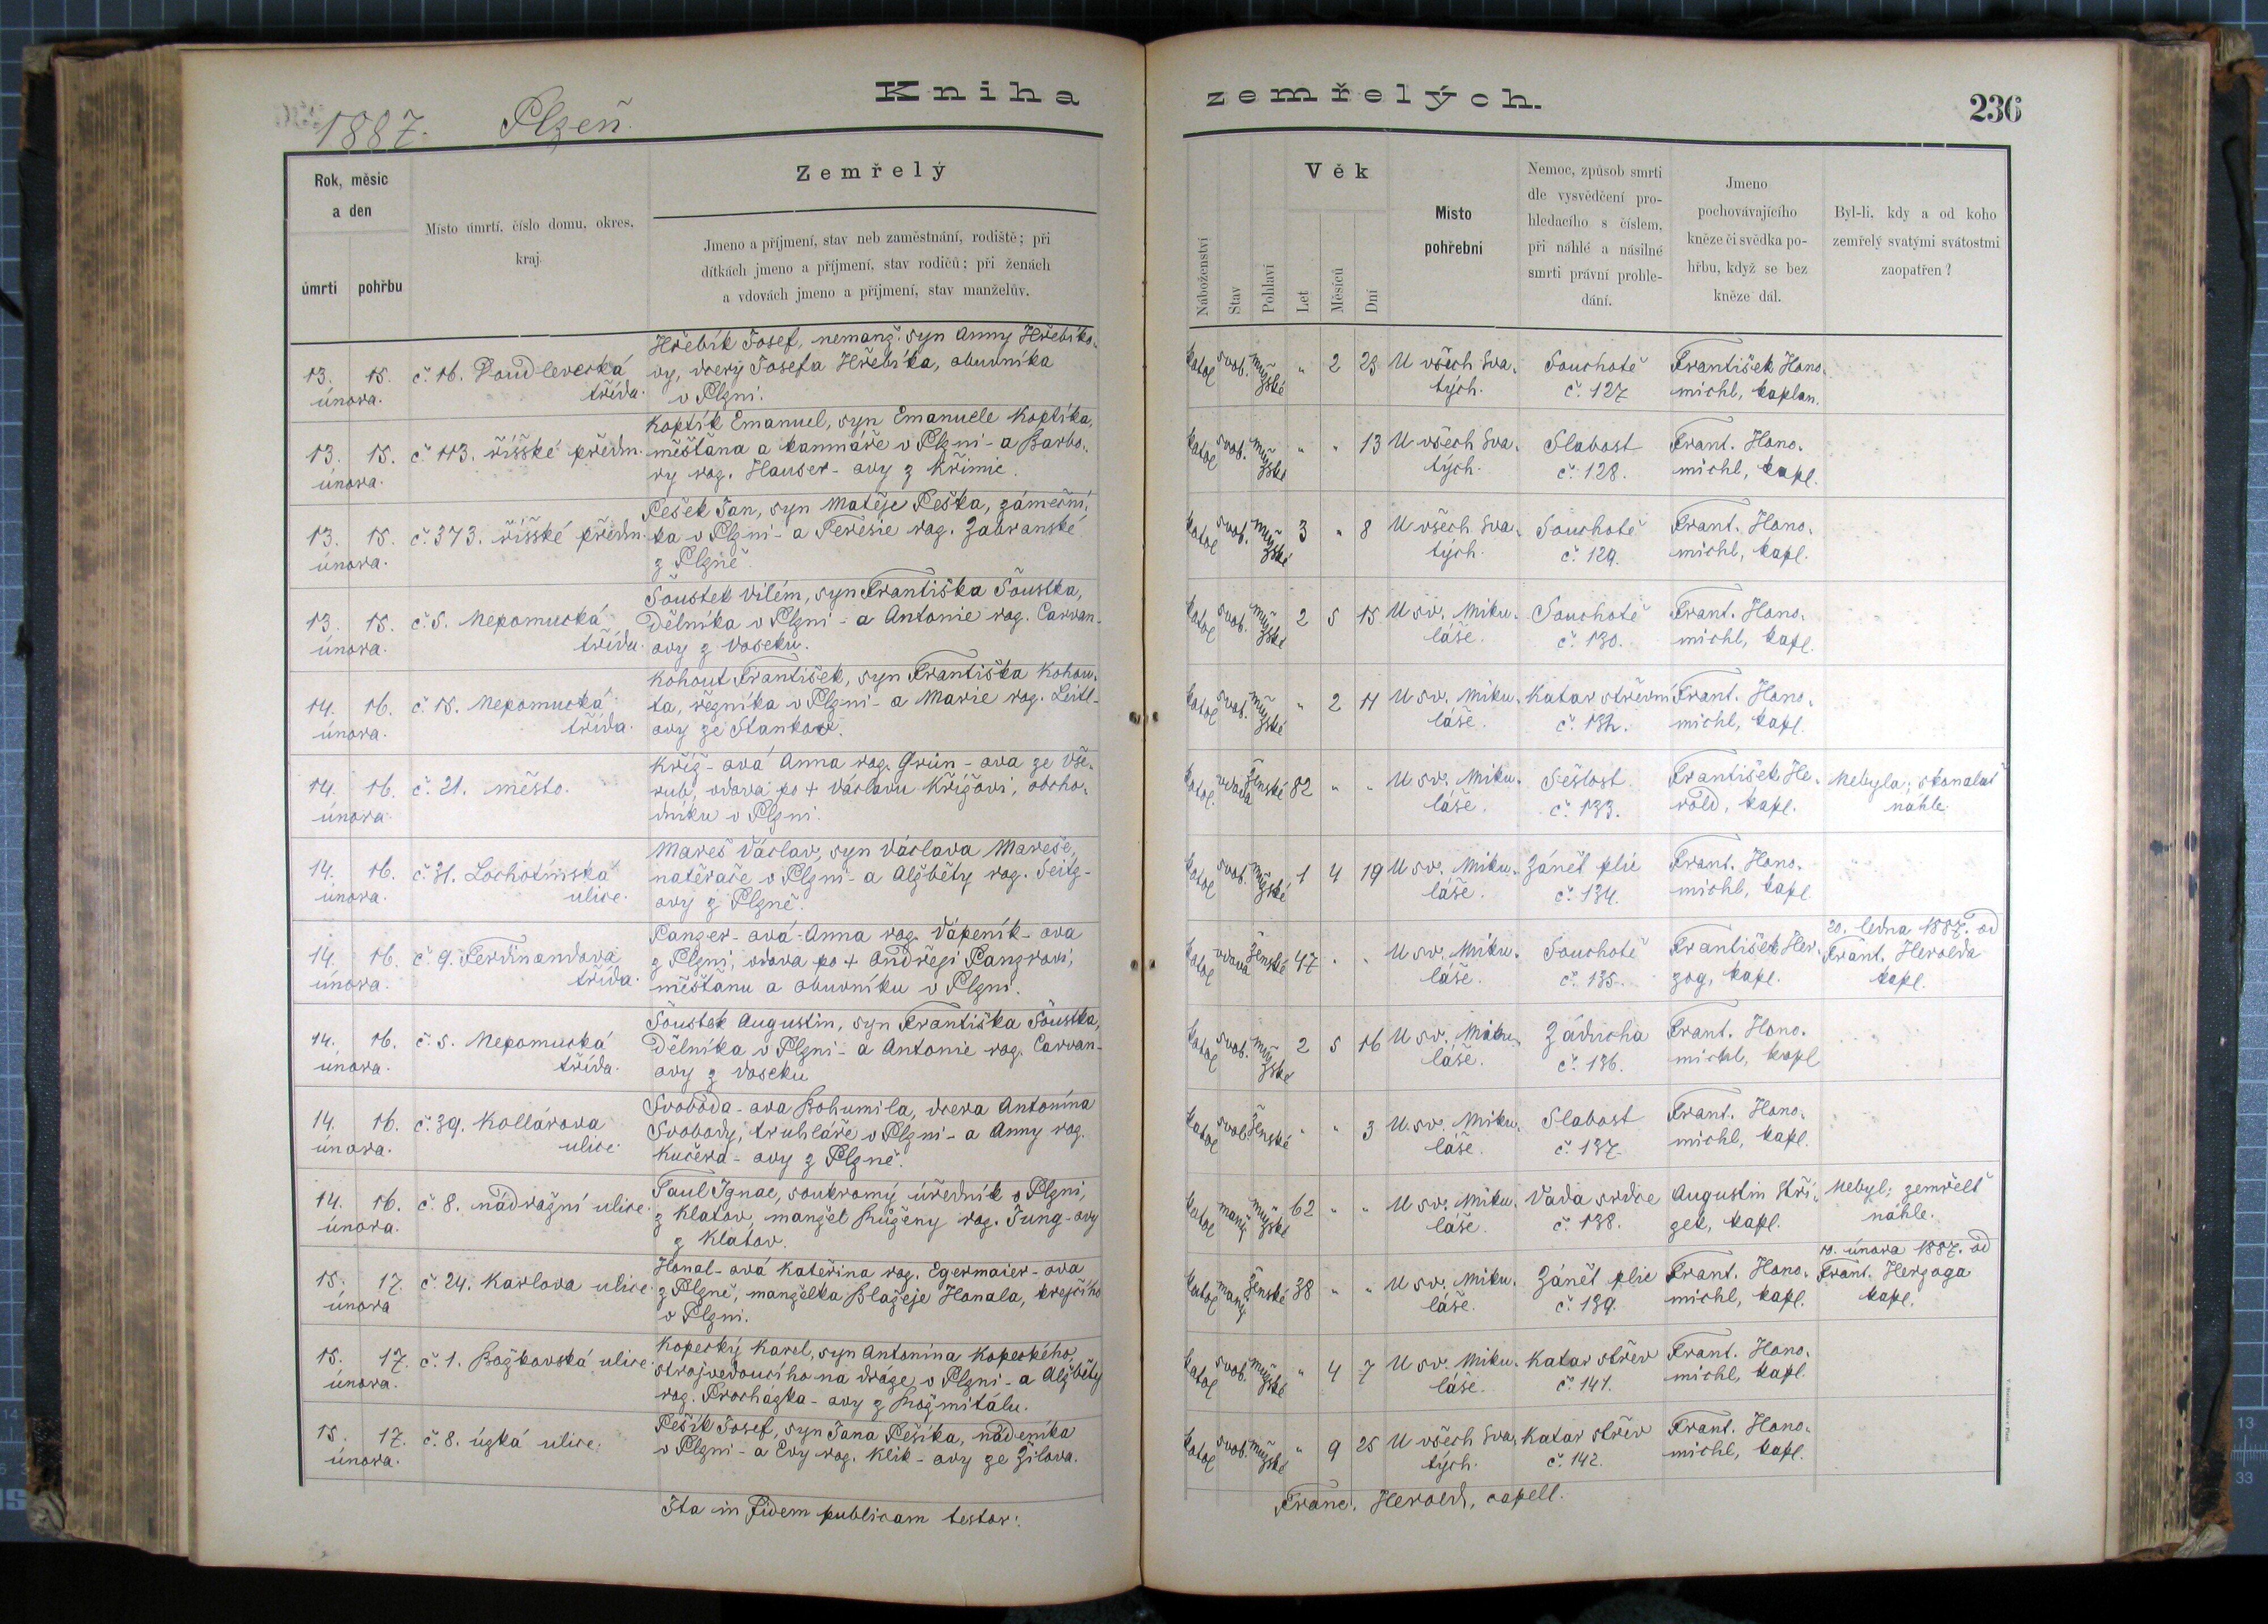 Kniha
zemřelých.
236
1887. Plzeň.
Rok, měsíc
a den
úmrtí
pohřbu
Místo úmrtí, číslo domu, okres,
kraj.
Zemřelý
Jmeno a příjmení, stav neb zaměstnání, rodiště; při
dítkách jmeno a příjmení, stav rodičů; při ženách
a vdovách jmeno a příjmení, stav manželův.
Náboženství
Stav
Pohlaví
Věk
Let
Měsíců
Dní
Místo
pohřební
Nemoc, způsob smrti
dle vysvědčení pro-
hledacího s číslem,
při náhlé a násilné
smrti právní prohle-
dání.
Jmeno
pochovávajícího
kněze či svědka po-
hřbu, když se bez
kněze dál.
Byl-li, kdy a od koho
zemřelý svatými svátostmi
zaopatřen?
13. 15. února.
č. 16. Doudlevecká
třída.
Hřebík Josef, nemanž. syn Anny Hřebíko-
vy, dcery Josefa Hřebíka, obuvníka
v Plzni.
katol svob. mužské " 2 23
U všech Sva-
tých.
Souchotě
č. 127
František Hono-
michl, kaplan.
13. 15. února.
č. 113. říšské předm.
Koptík Emanuel, syn Emanuele Koptíka,
měšťana a kamnáře v Plzni - a Barbo-
ry roz. Hauser-ovy z Křimic.
katol svob. mužské " " 13
U všech Sva-
tých.
Slabost
č. 128.
Frant. Hono-
michl, kapl.
13. 15. února.
č. 373. říšské předm.
Pešek Jan, syn Matěje Peška, zámeční-
ka v Plzni - a Teresie roz. Zabranské
z Plzně.
katol svob. mužské 3 " 8
U všech Sva-
tých.
Souchotě
č. 129.
Frant. Hono-
michl, kapl.
13. 15. února.
č. 5. Nepomucká
třída.
Šoustek Vilém, syn Františka Šoustka,
Dělníka v Plzni - a Antonie roz. Carvan-
ovy z Voseku.
katol svob. mužské 2 5 15
U sv. Miku-
láše.
Souchotě
č. 130.
Frant. Hono-
michl, kapl.
14. 16. února.
č. 15. Nepomucká
třída.
Kohout František, syn Františka Kohou-
ta, řezníka v Plzni - a Marie roz. Leitl-
ovy ze Stankov.
katol svob. mužské " 2 11
U sv. Miku-
láše.
Katar střevní
č. 132.
Frant. Hono-
michl, kapl.
14. 16. února.
č. 21. město.
Kříž-ová Anna roz. Grün-ova ze Vše-
rub, vdova po + Václavu Křížovi, obcho-
dníku v Plzni.
katol. vdova ženské 82 " "
U sv. Miku-
láše.
Sešlost
č. 133.
František He-
rold, kapl.
Nebyla; skonalať
náhle.
14. 16. února.
č. 31. Lochotínská
ulice.
Mareš Václav, syn Václava Mareše,
natěrače v Plzni - a Alžběty roz. Seitz-
ovy z Plzně.
katol svob. mužské 1 4 19
U sv. Miku-
láše.
Zánět plic
č. 134.
Frant. Hono-
michl, kapl.
14. 16. února.
č. 9. Ferdinandova
třída.
Panzer-ová-Anna roz. Vápeník-ova
z Plzni, vdova po + Andřeji Panzrovi,
měšťanu a obuvníku v Plzni.
katol vdova ženské 47 " "
U sv. Miku-
láše.
Souchotě
č. 135.
František Her-
zog, kapl.
20. ledna 1887. od
Frant. Herolda
kapl.
14. 16. února.
č. 5. Nepomucká
třída.
Šoustek Augustin, syn Františka Šoustka,
Dělníka v Plzni - a Antonie roz. Carvan-
ovy z Voseku
katol svob. mužské 2 5 16
U sv. Miku-
láše.
Záducha
č. 136.
Frant. Hono-
michl, kapl
14. 16. února.
č. 39. Kollárova
ulice.
Svoboda-ova Bohumila, dcera Antonína
Svobody, truhláře v Plzni - a Anny roz.
Kučera-ovy z Plzně.
katol svob. ženské " " 3
U sv. Miku-
láše.
Slabost
č. 137.
Frant. Hono-
michl, kapl.
14. 16. února.
č. 8. nádražní ulice.
Taul Ignac, soukromý úředník v Plzni,
z Klatov, manžel Růženy roz. Jung-ovy
z Klatov.
katol manž mužské 62 " "
U sv. Miku-
láše.
Vada srdce
č. 138.
Augustin Stří-
zek, kapl.
Nebyl; zemřelť
náhle.
15. 17. února
č. 24. Karlova ulice.
Honal-ová Kateřina roz. Egermaier-ova
z Plzně, manželka Blažeje Honala, krejčího
v Plzni.
katol manž ženské 38 " "
U sv. Miku-
láše.
Zánět plic
č. 139.
Frant. Hono-
michl, kapl.
10. února 1887. od
Frant. Herzoga
kapl.
15. 17. února.
č. 1. Božkovská ulice.
Kopecký Karel, syn Antonína Kopeckého,
strojvedoucího na dráze v Plzni - a Alžběty
roz. Procházka-ovy z Rožmitálu.
katol svob. mužské " 4 7
U sv. Miku-
láše.
Katar střev
č. 141.
Frant. Hono-
michl, kapl.
15. 17. února.
č. 8. úzká ulice.
Pešík Josef, syn Jana Pešíka, nádeníka
v Plzni - a Evy roz. Klik-ovy ze Žilova.
katol svob. mužské " 9 25
U všech Sva-
tých.
Katar střev
č. 142.
Frant. Hono-
michl, kapl.
Ita in fidem publicam testor:
Franc. Herold, capell.